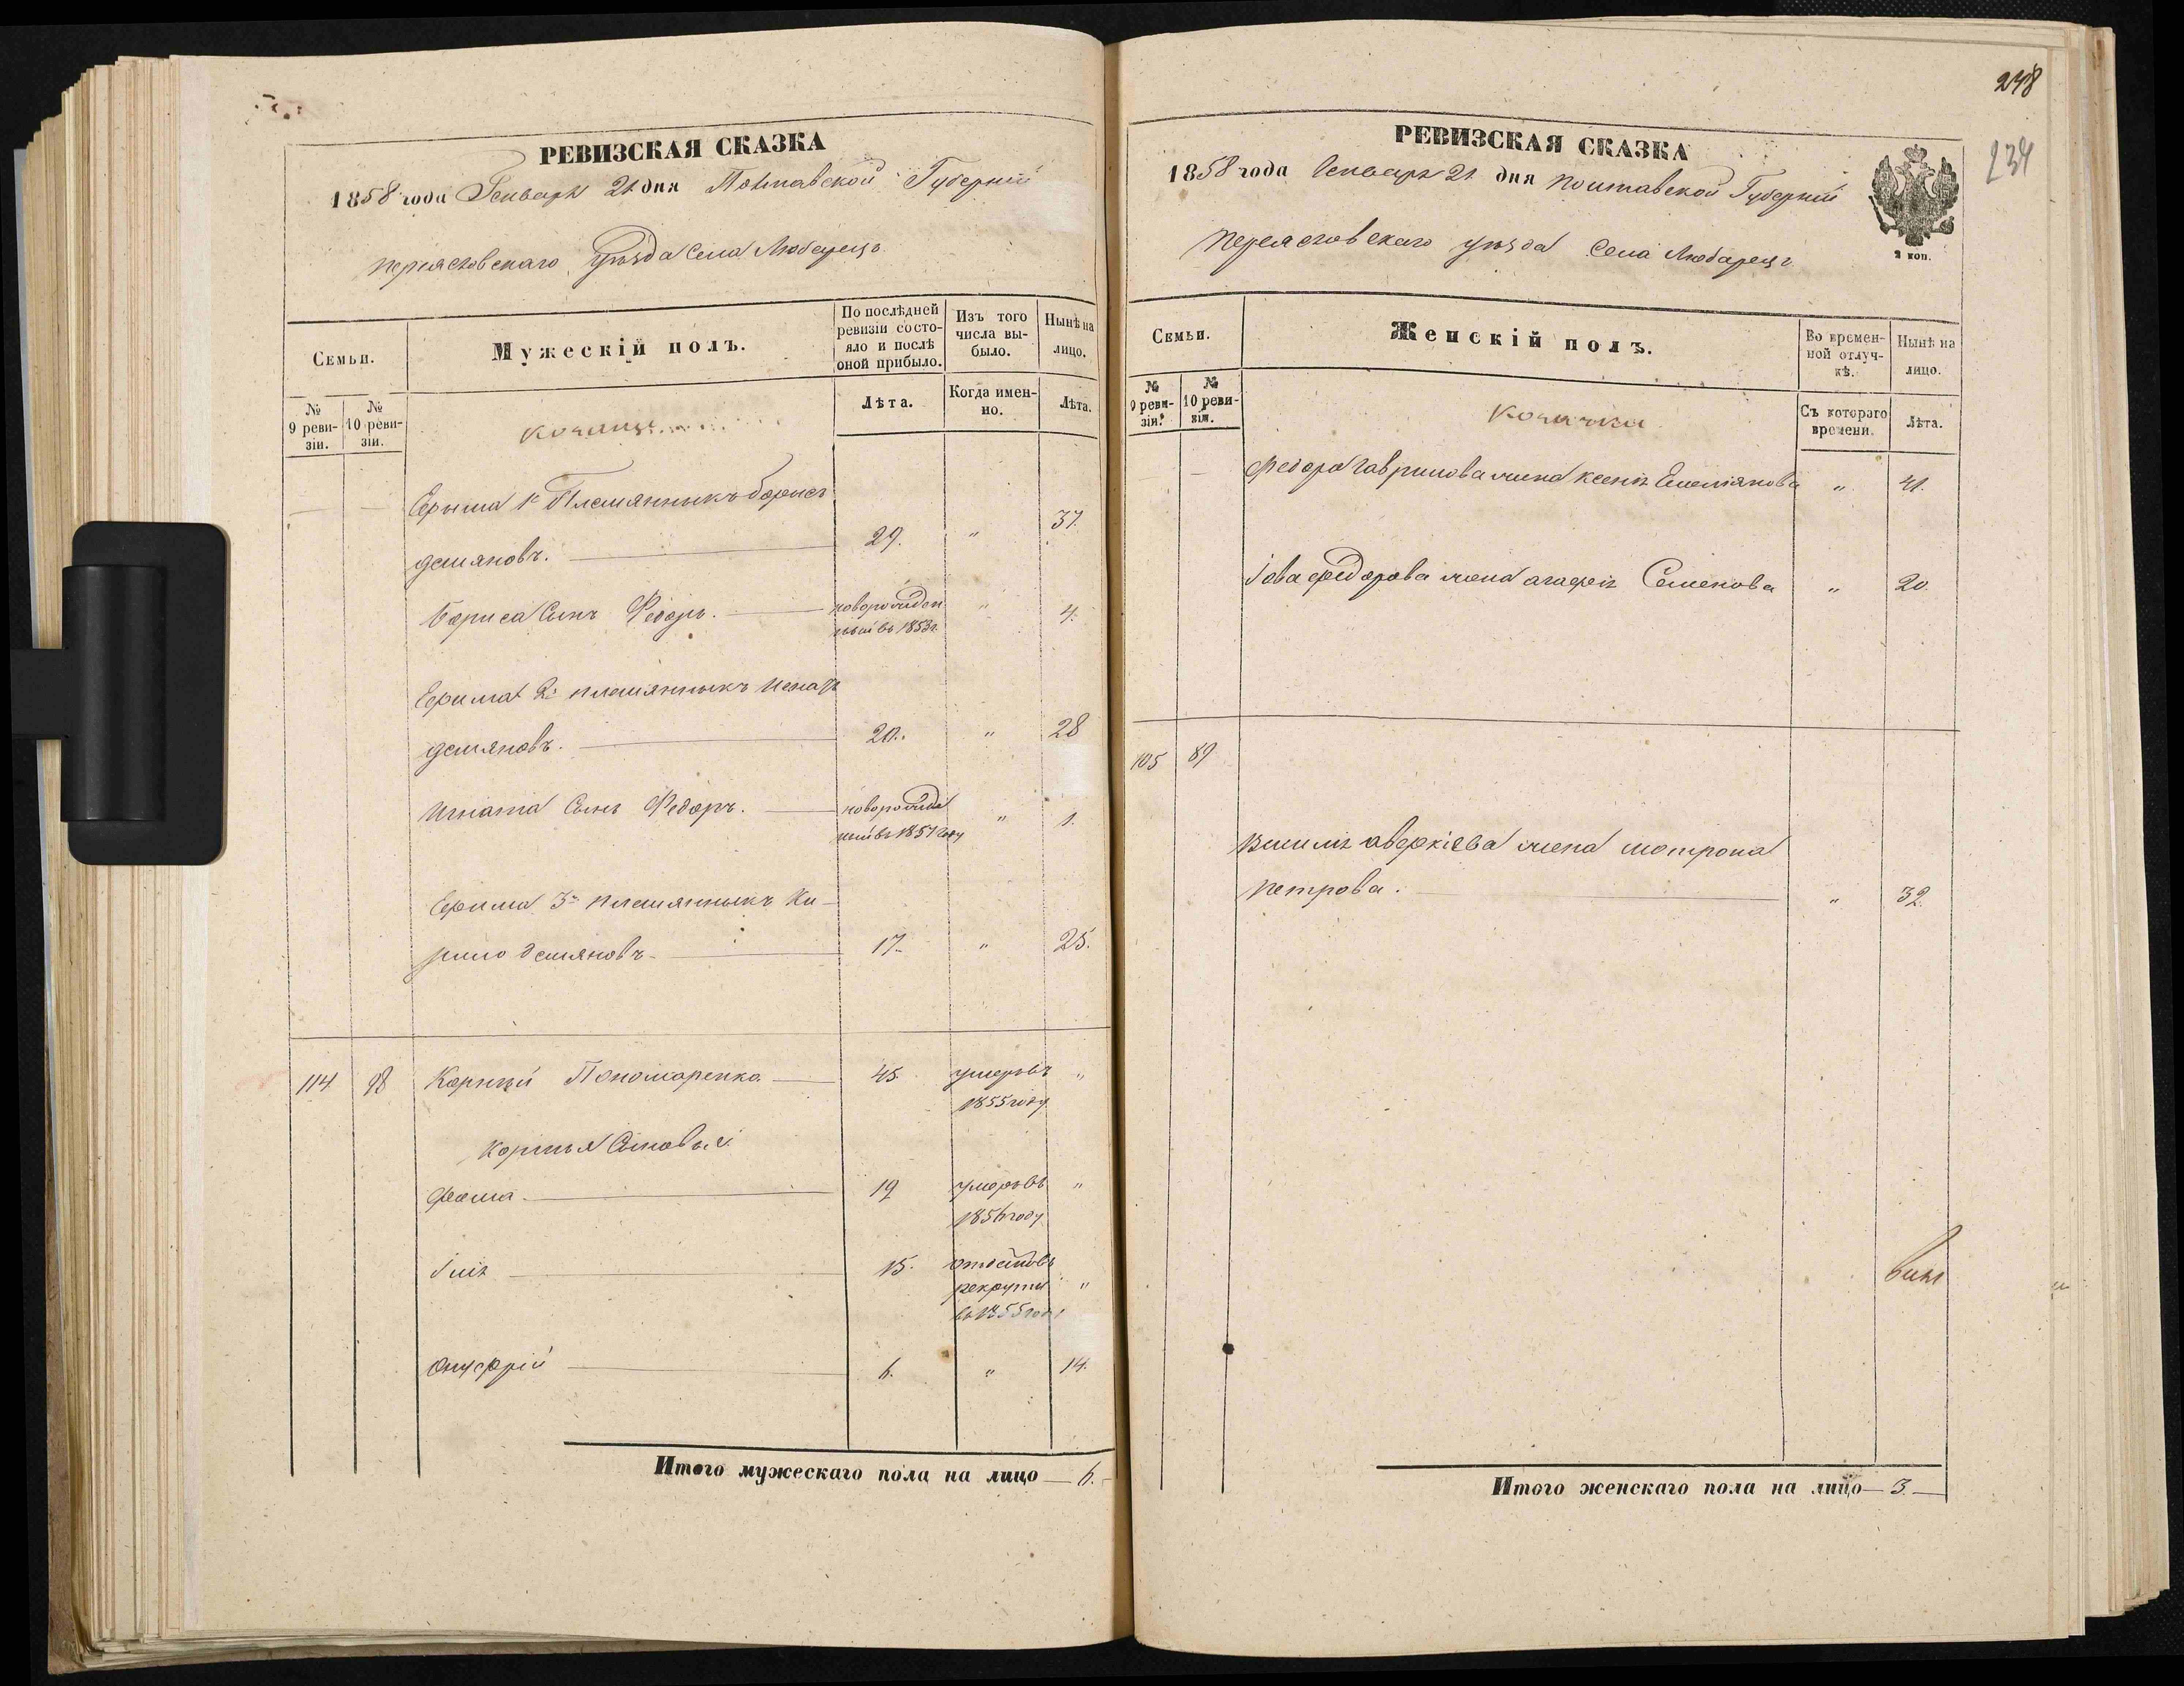 248
234
РЕВИЗСКАЯ СКАЗКА
1858 года Генваря 21 дня Полтавской Губерніи
Переясловскаго Уѣзда Села Любарецъ
Семьи.
Мужескій полъ.
По послѣдней ревизіи состояло и послѣ оной прибыло.
Изъ того числа выбыло.
Нынѣ на лицо.
№ 9 ревизіи.
№ 10 ревизіи.
Лѣта.
Когда именно.
Лѣта.
козаки
Ефима 1й Племянникъ Борисъ
демяновъ. 29. " 37.
Бориса Сынъ Федоръ. новорожден
ный въ 1853г. " 4.
Ефима 2й племянникъ Игнатъ
демяновъ. 20. " 28
Игната Сынъ Федоръ. новорожден
ный въ 1857 году " 1.
Ефима 3й племянникъ Ки-
рило демяновъ 17. " 25.
114 98 Корнѣй Пономаренко 45. умеръ въ "
1855 году
Корнѣя Сыновья
Фома. 19 умеръ въ "
1856 году
Ілія 15. отданъ въ
рекруты "
въ 1855 году
Онуфрій 6. " 14.
Итого мужескаго пола на лицо 6.
РЕВИЗСКАЯ СКАЗКА
1858 года Генваря 21 дня Полтавской Губерніи
Переясловскаго уѣзда Села Любарецъ
2 коп.
Семьи.
Женскій полъ.
Во временной отлучкѣ.
Нынѣ на лицо.
№ 9 ревизіи.
№ 10 ревизіи.
Съ котораго времени.
Лѣта.
козачки
Федора Гаврилова жена Ксенія Емеліянова " 41.
Іова Федорова жена агафія Семенова " 20.
105 89
Василія аверкіева жена мотрона
Петрова. " 32.
Итого женскаго пола на лицо 3